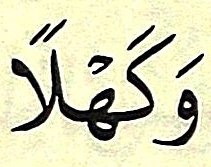 وَكَهْلًا